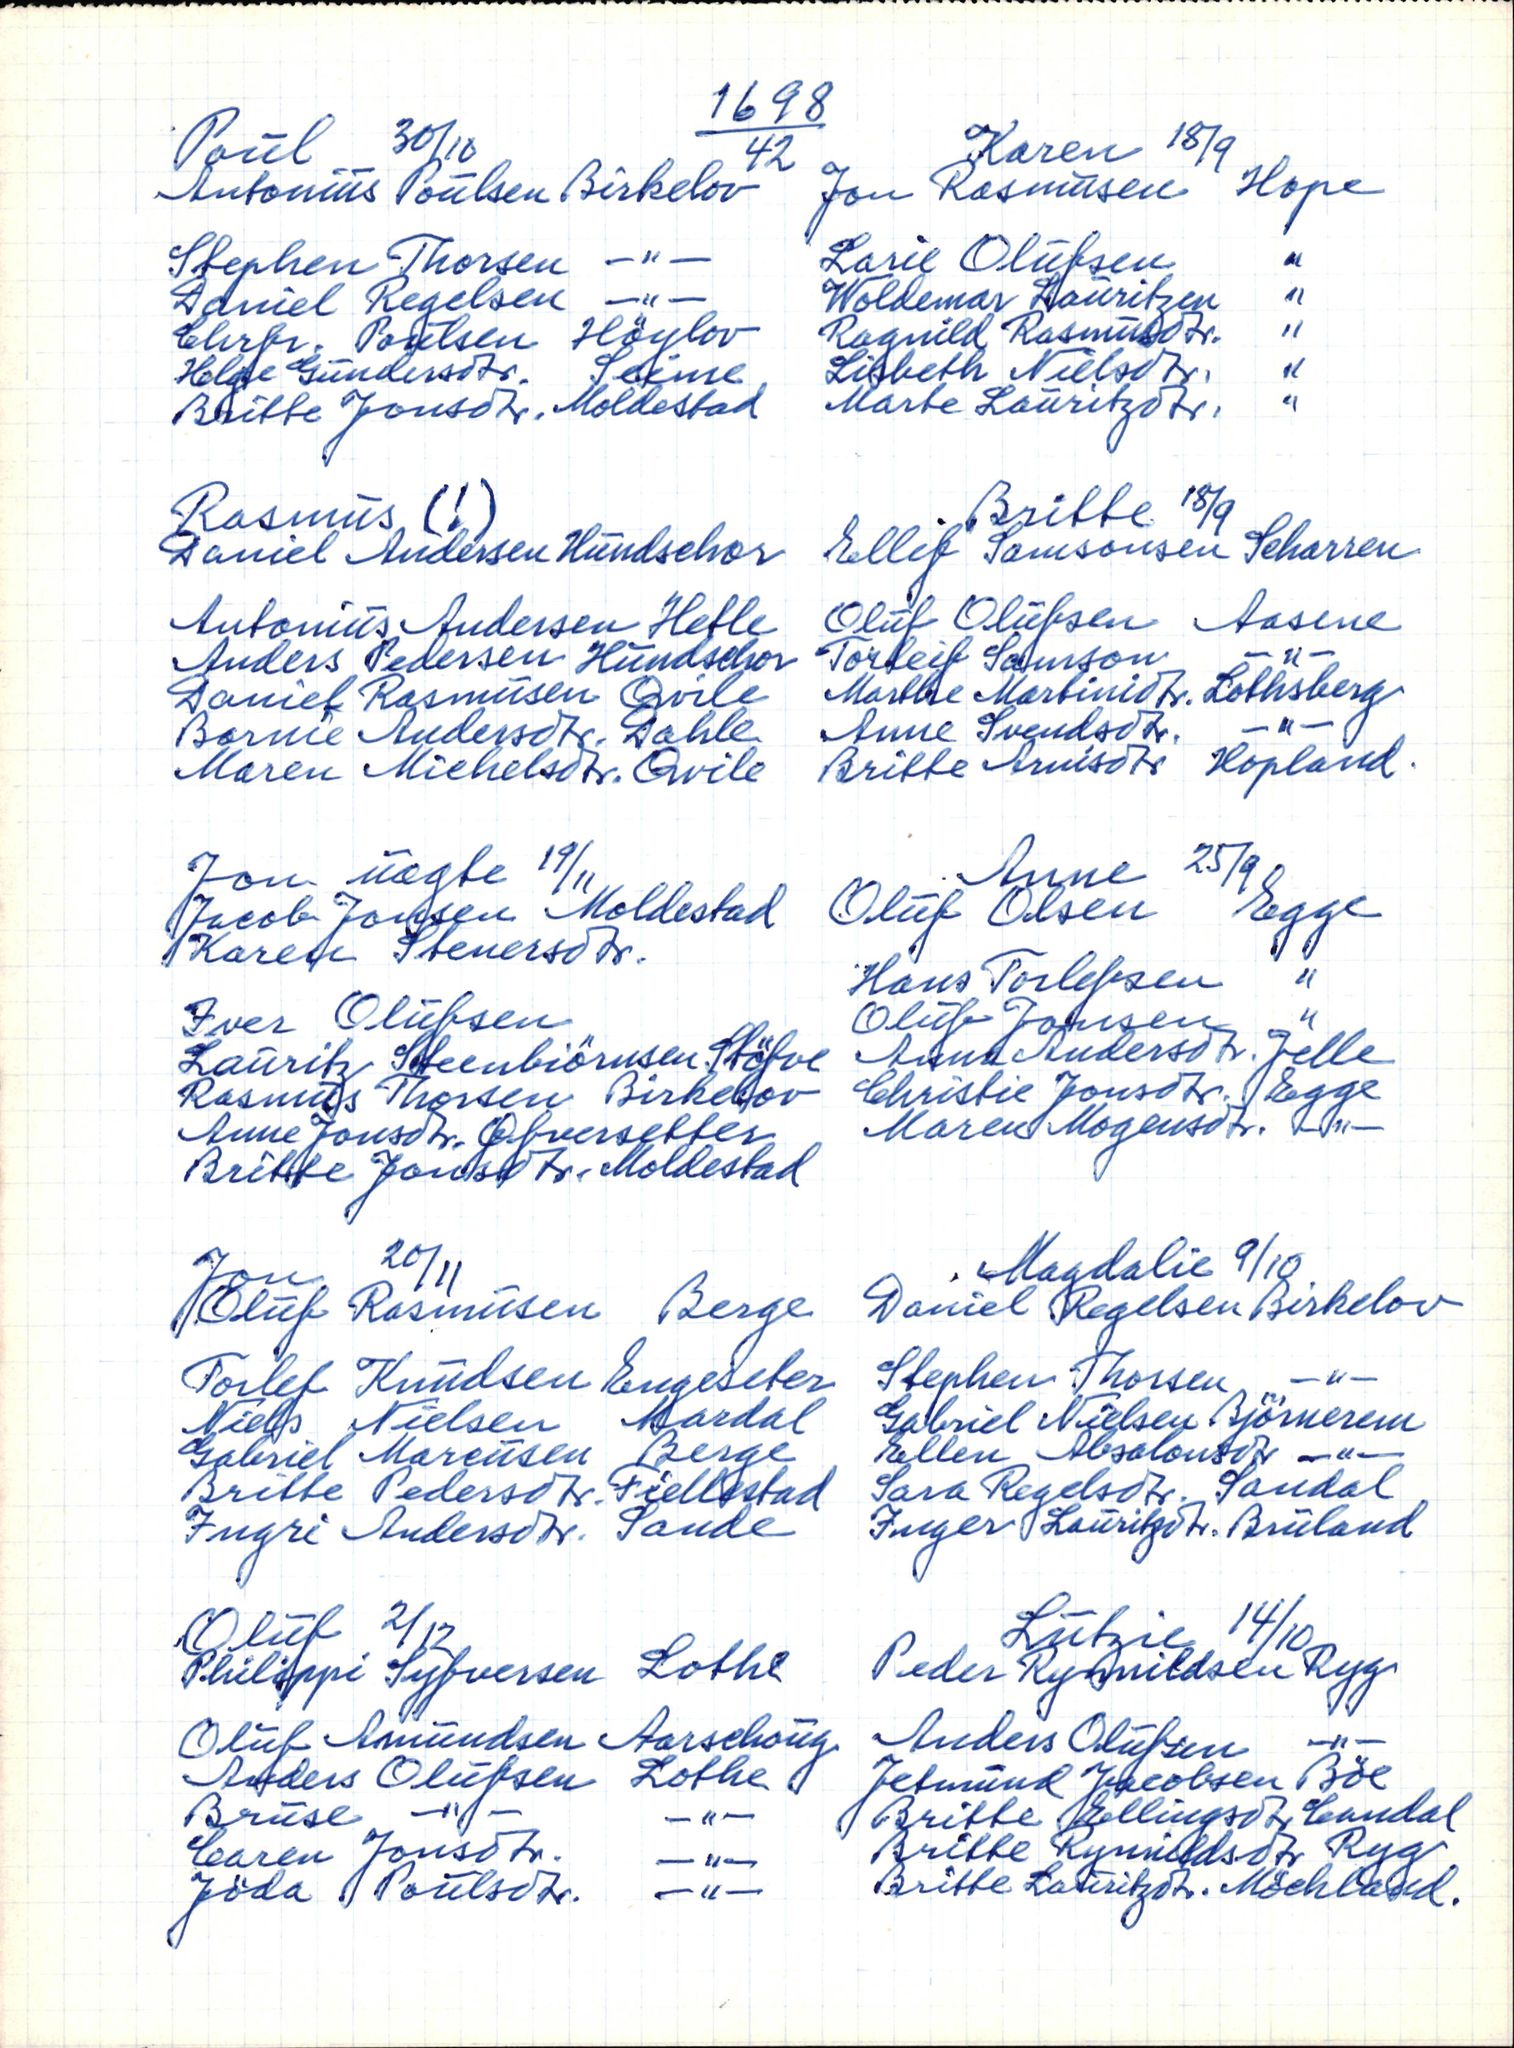 1698
42
Poul 30/10
Antonius Poulsen Birkelov
Stephen Thorsen —"—
Daniel Regelsen —"—
Chrfr. Poulsen Höylov
Helge Gundersdtr. Seime
Britte Jonsdtr. Moldestad
Rasmus (!)
Daniel Andersen Hundschor
Antonius Andersen Hetle
Anders Pedersen Hundschor
Daniel Rasmusen Qvile
Bornie Andersdtr. Dahle
Maren Michelsdtr. Qvile
Jon uægte 19/11
Jacob Jonsen Moldestad
Karen Stenersdtr.
Iver Olufsen
Lauritz Steenbiörnsen Stöfve
Rasmus Thorsen Birkelov
Anne Jonsdtr. Öfversetter
Britte Jonsdtr. Moldestad
Jon 20/11
Oluf Rasmusen Berge
Torlef Knudsen Engeseter
Niels Nielsen Mardal
Gabriel Marcusen Berge
Britte Pedersdtr. Fiellestad
Ingri Andersdtr. Sande
Oluf 2/12
Philippi Syfversen Lothe
Oluf Amundsen Aarschoug
Anders Olufsen Lothe
Bruse —"— —"—
Caren Jonsdtr. —"—
Jöda Poulsdtr. —"—
Karen 18/9
Jon Rasmusen Hope
Larie Olufsen "
Woldemar Lauritzen "
Ragnild Rasmusdtr. "
Lisbeth Nielsdtr. "
Marte Lauritzdtr. "
Britte 18/9
Ellif Samsonsen Scharren
Oluf Olufsen Aasene
Torleif Samson —"—
Marthe Martinidtr. Lothsberg
Anne Svendsdtr. —"—
Britte Arnisdtr Hopland.
Anne 25/9
Oluf Olsen Egge
Hans Torlefsen "
Oluf Jonsen "
Anna Andersdtr. Jelle
Christie Jonsdtr. Egge
Maren Mogensdtr. —"—
Magdalie 9/10
Daniel Regelsen Birkelov
Stephen Thorsen —"—
Gabriel Nielsen Björnerem
Ellen Absalonsdtr —"—
Sara Regelsdtr. Sandal
Inger Lauritzdtr. Bruland
Lutzie 14/10
Peder Rynnildsen Ryg
Anders Olufsen —"—
Jetmund Jacobsen Böe
Britte Ellingsdtr Eundal
Britte Rynnildsdtr Ryg
Britte Lauritzdtr. Möchland.